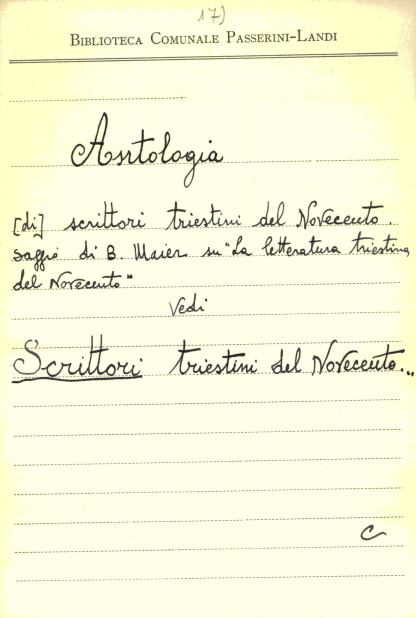 17)
BIBLIOTECA COMUNALE PASSERINI-LANDI
Antologia
[di] scrittori triestini del Novecento.
saggio di B. Maier su "La letteratura triestina
del Novecento"
Vedi
Scrittori triestini del Novecento...
C